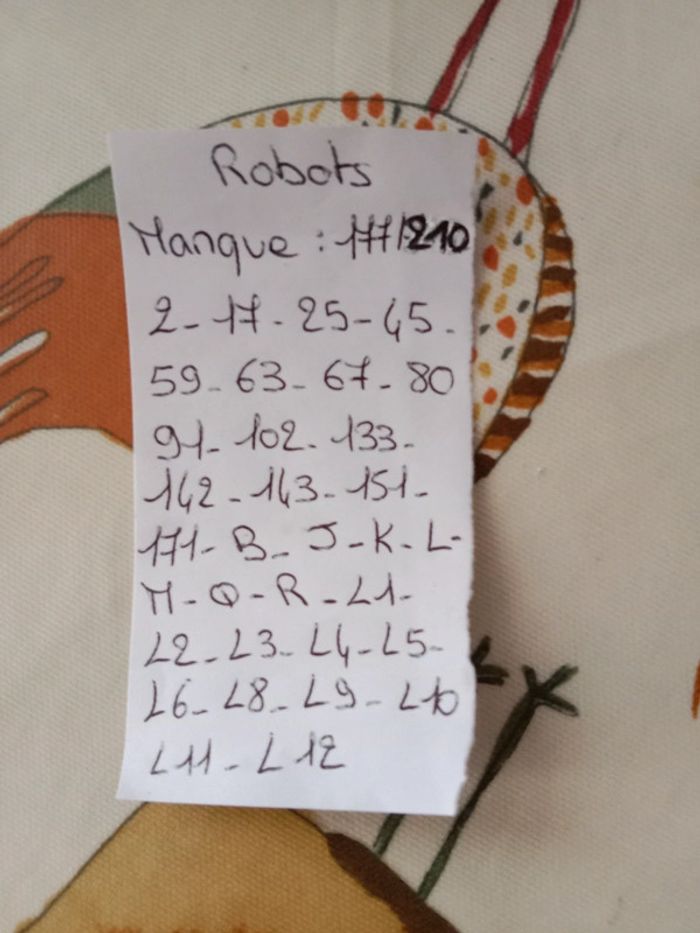 Robots
Manque : 177/210
2-17-25-45-
59-63-67-80
91-102-133-
142-143-151-
171-B-J-K-L-
M-Q-R-L1-
L2-L3-L4-L5-
L6-L8-L9-L10
L11-L12